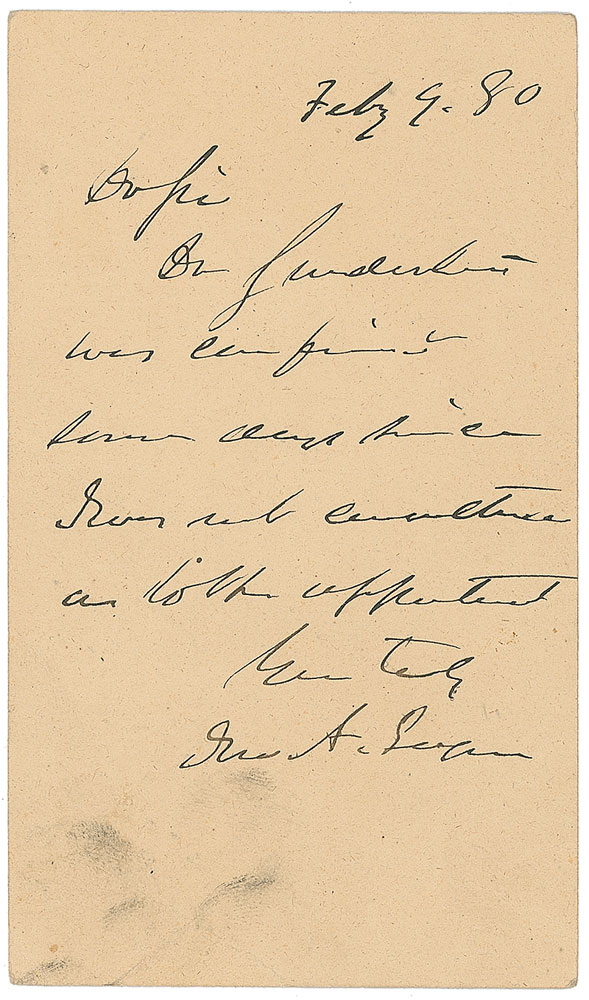 Feby 9. 80
Dr Sir
Dr
was confirmd
some days since
I was not consulted
as to the appointmt
Yours Truly
Jno A. Logan